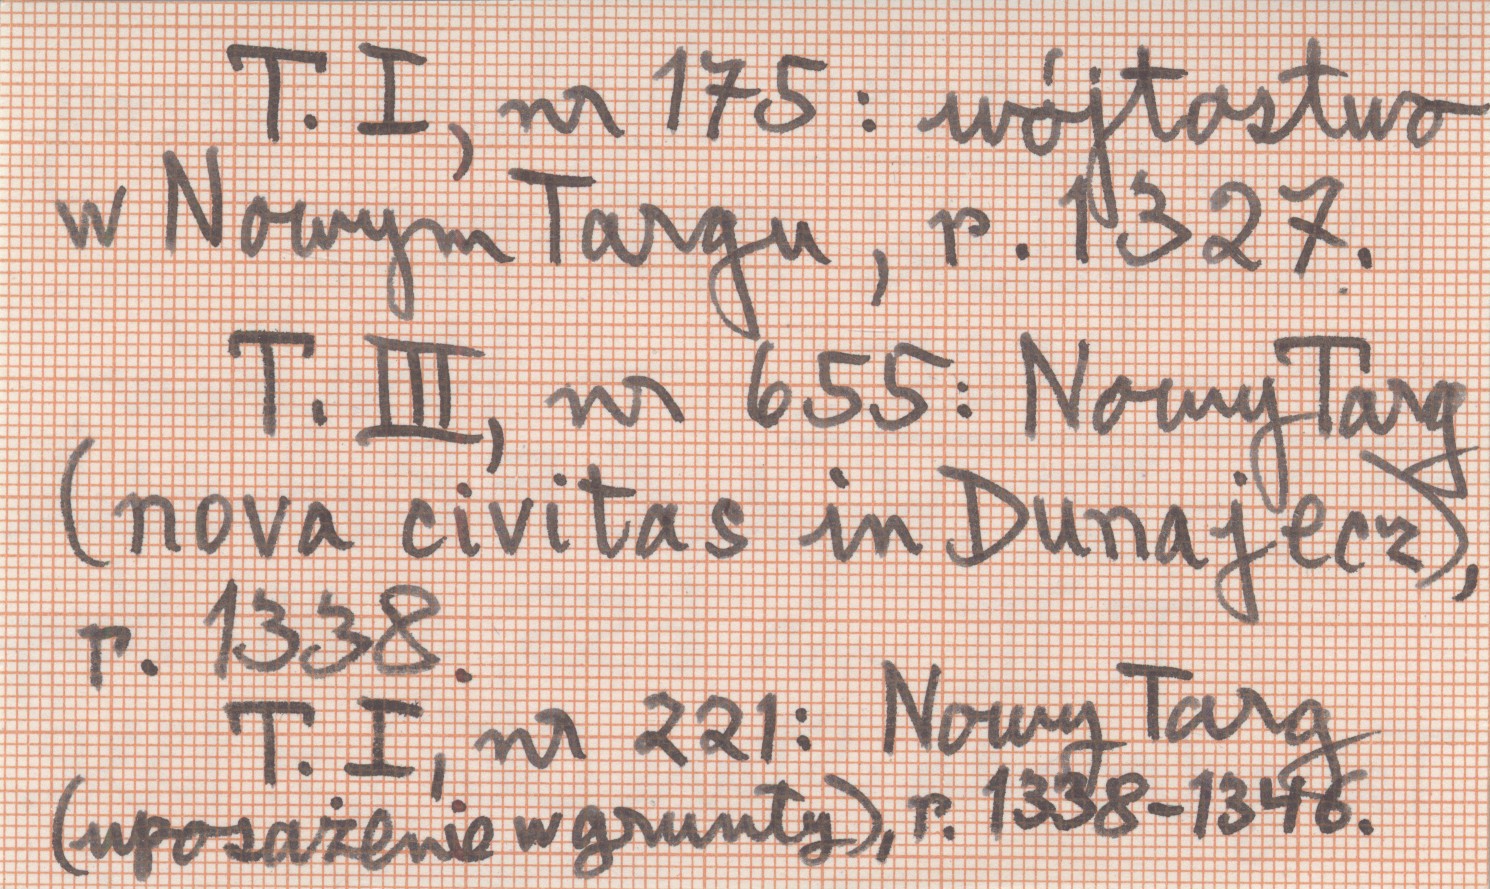 T. I, nr 175: wójtostwo
w Nowym Targu, r. 1327.
T. III, nr 655: Nowy Targ
(nova civitas in Dunajecz),
r. 1338.
T. I, nr 221: Nowy Targ
(uposażenie w grunty), r. 1338-1346.